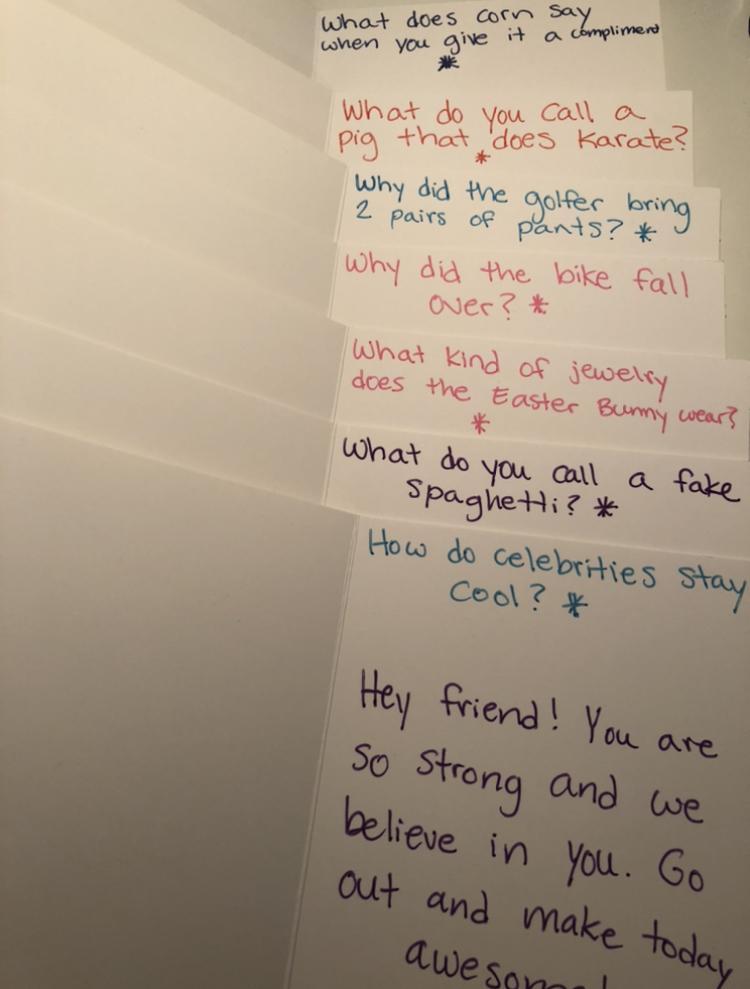 What does corn say
when you give it a compliment
*
What do you call a
pig that does Karate?
*
Why did the golfer bring
2 pairs of pants? *
Why did the bike fall
over? *
What kind of jewelry
does the Easter Bunny wear?
*
What do you call a fake
spaghetti? *
How do celebrities stay
cool? *
Hey friend! You are
so strong and we
believe in you. Go
out and make today
awesome!